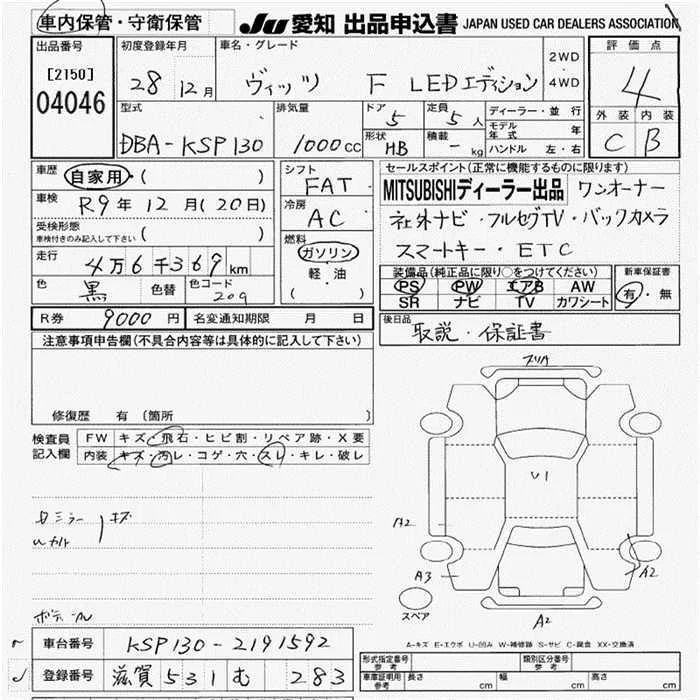 車内保管・守衛保管
JU 愛知 出品申込書 JAPAN USED CAR DEALERS ASSOCIATION
出品番号
[2150]
04046
初度登録年月
28 12月
車名・グレード
ヴィッツ F LEDエディション
2WD
4WD
評価点
4
外装 内装
C B
型式
DBA-KSP130
排気量
1000cc
ドア
5
定員
5人
形状
HB
積載
- kg
ディーラー・並行
モデル年式 年
ハンドル 左・右
車歴
自家用・( )
車検
R9年12月(20日)
受検形態
車検付きのみ記入して下さい ( )
走行
4万6千369km
色
黒
色替
色コード
209
シフト
FAT
冷房
AC
燃料
ガソリン
軽・油
( )
セールスポイント(正常に機能するものに限ります)
MITSUBISHIディーラー出品 ワンオーナー
社外ナビ・フルセグTV・バックカメラ
スマートキー・ETC
装備品(純正品に限り○をつけてください)
PS PW エアB AW
SR ナビ TV カワシート
新車保証書
有・無
R券 9000円 名変通知期限 月 日
後日品
取説・保証書
注意事項申告欄(不具合内容等は具体的に記入して下さい)
修復歴 有 (箇所 )
検査員
記入欄
FW キズ・飛石・ヒビ割・リペア跡・X要
内装 キズ・汚レ・コゲ・穴・スレ・キレ・破レ
キズ
U1
A2
A3
A2
A2
スペア
A-キズ E-エクボ U-凹み W-補修跡 S-サビ C-腐食 XX-交換済
車台番号 KSP130-2191592
登録番号 滋賀 531 む 283
形式指定番号
参考
類別区分番号
参考
車庫証明用
参考
長さ cm 幅 cm 高さ cm